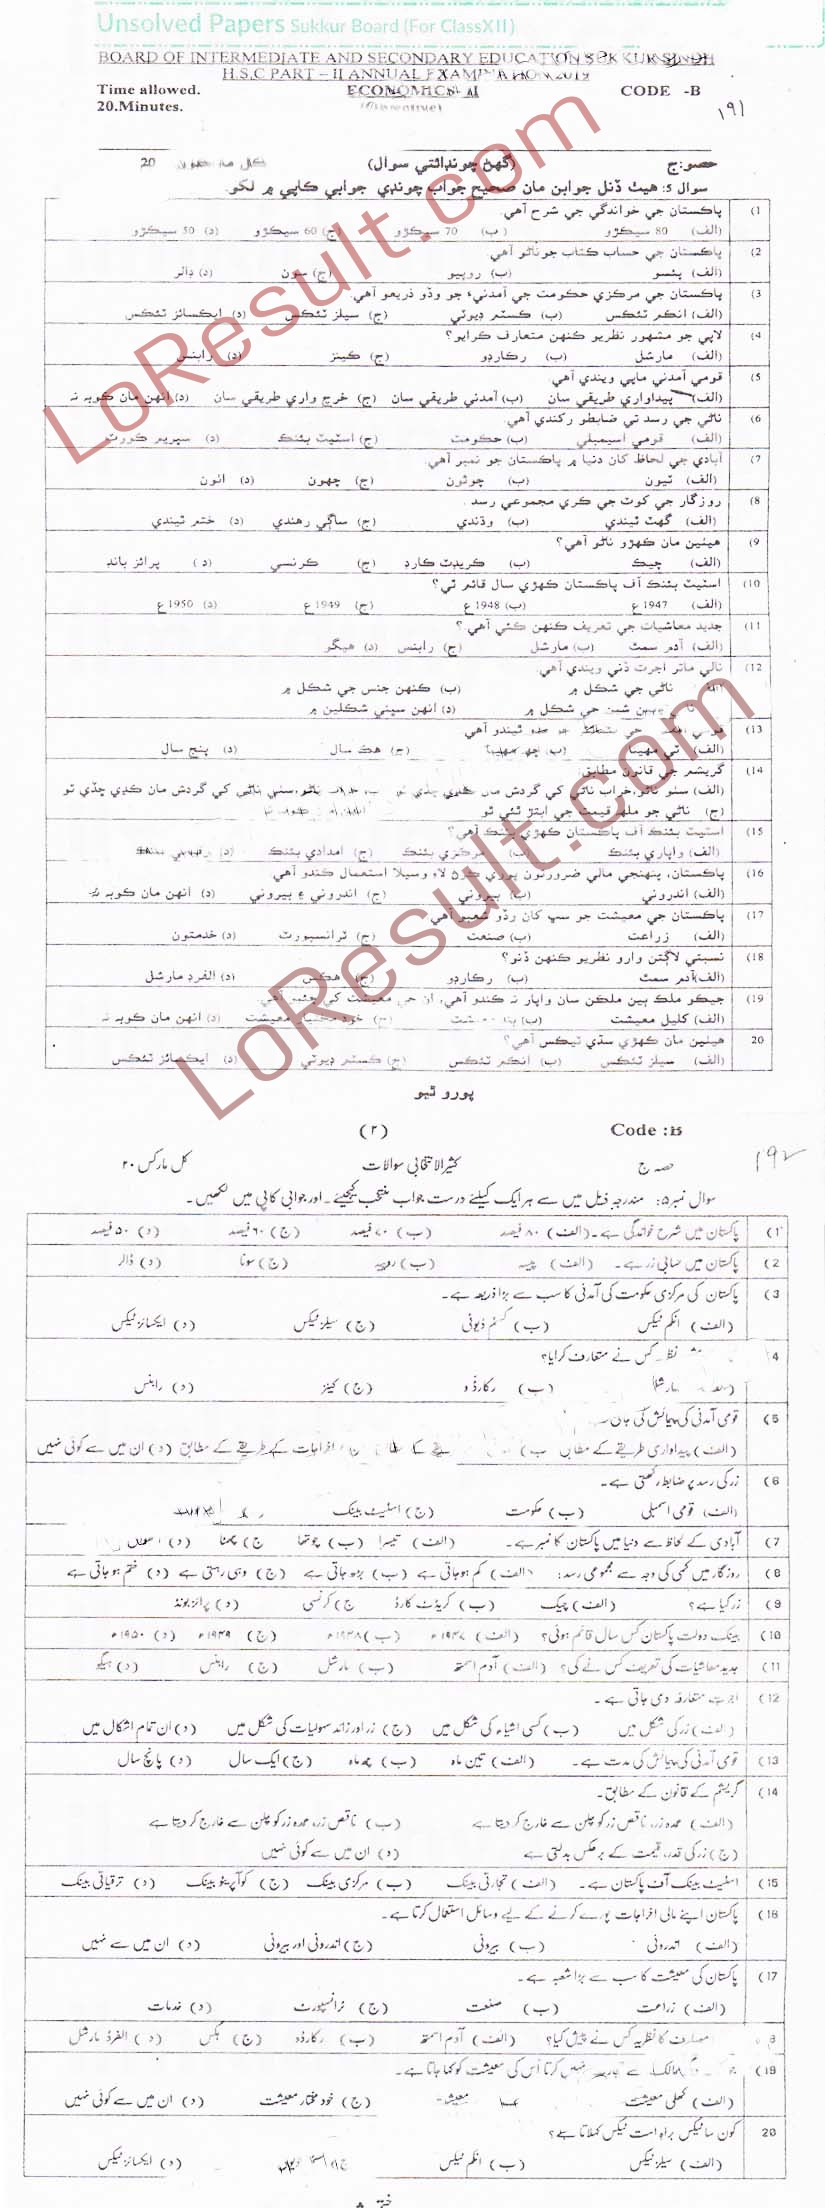 Unsolved Papers Sukkur Board (For ClassXII)
BOARD OF INTERMEDIATE AND SECONDARY EDUCATION SUKKUR SINDH
H.S.C PART - II ANNUAL EXAMINATION 2019
Time allowed. ECONOMICS-II CODE -B
20.Minutes.
۱۹۱
حصو:ج (گهڻ چونڊائتي سوال) 20
سوال 5: هيٺ ڏنل جوابن مان صحيح جواب چونڊي جوابي ڪاپي ۾ لکو.
(1 پاڪستان جي خواندگي جي شرح آهي.
(الف) 80 سيڪڙو (ب) 70 سيڪڙو (ج) 60 سيڪڙو (د) 50 سيڪڙو
(2 پاڪستان جي حساب ڪتاب جو ناڻو آهي.
(الف) پئسو (ب) روپيو (ج) سون (د) ڊالر
(3 پاڪستان جي مرڪزي حڪومت جي آمدنيءَ جو وڏو ذريعو آهي.
(الف) انڪم ٽئڪس (ب) ڪسٽم ڊيوٽي (ج) سيلز ٽئڪس (د) ايڪسائز ٽئڪس
(4 لاپي جو مشهور نظريو ڪنهن متعارف ڪرايو؟
(الف) مارشل (ب) رڪارڊو (ج) ڪينز (د) رابنس
(5 قومي آمدني ماپي ويندي آهي.
(الف) پيداواري طريقي سان (ب) آمدني طريقي سان (ج) خرچ واري طريقي سان (د) انهن مان ڪوبہ نہ
(6 ناڻي جي رسد تي ضابطو رکندي آهي.
(الف) قومي اسيمبلي (ب) حڪومت (ج) اسٽيٽ بئنڪ (د) سپريم ڪورٽ
(7 آبادي جي لحاظ کان دنيا ۾ پاڪستان جو نمبر آهي.
(الف) ٽيون (ب) چوٿون (ج) ڇهون (د) اٺون
(8 روزگار جي کوٽ جي ڪري مجموعي رسد
(الف) گهٽ ٿيندي (ب) وڌندي (ج) ساڳي رهندي (د) ختم ٿيندي
(9 هيٺين مان ڪهڙو ناڻو آهي؟
(الف) چيڪ (ب) ڪريڊٽ ڪارڊ (ج) ڪرنسي (د) پرائز بانڊ
(10 اسٽيٽ بئنڪ آف پاڪستان ڪهڙي سال قائم ٿي؟
(الف) 1947ع (ب) 1948ع (ج) 1949ع (د) 1950ع
(11 جديد معاشيات جي تعريف ڪنهن ڪئي آهي؟
(الف) آدم سمٿ (ب) مارشل (ج) رابنس (د) هيگو
(12 نالي ماتر اجرت ڏني ويندي آهي.
ناڻي جي شڪل ۾ (ب) ڪنهن جنس جي شڪل ۾
جي شڪل ۾ (د) انهن سڀني شڪلين ۾
(13 قومي ٿيندو آهي
(الف) ٽي مهينا (ب) ڇهه مهينا (ج) هڪ سال (د) پنج سال
(14 گريشم جي قانون مطابق
(الف) سٺو ناڻو، خراب ناڻي کي گردش مان ڪڍي ڇڏي ٿو ناڻو، سٺي ناڻي کي گردش مان ڪڍي ڇڏي ٿو
(ج) ناڻي جو ملهه قيمت جي ابتڙ ٿئي ٿو
(15 اسٽيٽ بئنڪ آف پاڪستان ڪهڙي بئنڪ آهي؟
(الف) واپاري بئنڪ (ب) مرڪزي بئنڪ (ج) امدادي بئنڪ (د)
(16 پاڪستان، پنهنجي مالي ضرورتون پوري ڪرڻ لاءِ وسيلا استعمال ڪندو آهي.
(الف) اندروني (ب) بيروني (ج) اندروني ۽ بيروني (د) انهن مان ڪوبہ نہ
(17 پاڪستان جي معيشت جو سڀ کان وڏو شعبو آهي
(الف) زراعت (ب) صنعت (ج) ٽرانسپورٽ (د) خدمتون
(18 نسبتي لاڳتن وارو نظريو ڪنهن ڏنو؟
(الف) آدم سمٿ (ب) رڪارڊو (ج) هڪس (د) الفرڊ مارشل
(19 جيڪو ملڪ ٻين ملڪن سان واپار نہ ڪندو آهي، ان جي معيشت کي چئبو آهي
(الف) کليل معيشت (ب) معيشت (ج) خود مختيار معيشت (د) انهن مان ڪوبہ نہ
20 هيٺين مان ڪهڙي سڌي ٽيڪس آهي؟
(الف) سيلز ٽئڪس (ب) انڪم ٽئڪس (ج) ڪسٽم ڊيوٽي (د) ايڪسائز ٽئڪس
پورو ٿيو
(۲) Code :B
۱۹۲
حصہ ج کثیر الانتخابی سوالات کل مارکس ۲۰
سوال نمبر ۵: مندرجہ ذیل میں سے ہر ایک کیلئے درست جواب منتخب کیجئے۔ اور جوابی کاپی میں لکھیں۔
(1 پاکستان میں شرح خواندگی ہے۔ (الف) ۸۰ فیصد (ب) ۷۰ فیصد (ج) ۶۰ فیصد (د) ۵۰ فیصد
(2 پاکستان میں حسابی زر ہے۔ (الف) پیسہ (ب) روپیہ (ج) سونا (د) ڈالر
(3 پاکستان کی مرکزی حکومت کی آمدنی کا سب سے بڑا ذریعہ ہے۔
(الف) انکم ٹیکس (ب) کسٹم ڈیوٹی (ج) سیلز ٹیکس (د) ایکسائز ٹیکس
4 کس نے متعارف کرایا؟
مارشل (ب) رکارڈو (ج) کینز (د) رابنس
(5 قومی آمدنی کی پیمائش کی
(الف) پیداواری طریقے کے مطابق (ب) طریقے کے اخراجات کے طریقے کے مطابق (د) ان میں سے کوئی نہیں
(6 زر کی رسد پر ضابطہ رکھتی ہے۔
(الف) قومی اسمبلی (ب) حکومت (ج) اسٹیٹ بینک
(7 آبادی کے لحاظ سے دنیا میں پاکستان کا نمبر ہے۔ (الف) تیسرا (ب) چوتھا (ج) چھٹا (د)
(8 روزگار میں کمی کی وجہ سے مجموعی رسد: (الف) کم ہوجاتی ہے (ب) بڑھ جاتی ہے (ج) وہی رہتی ہے (د) ختم ہو جاتی ہے
(9 زر کیا ہے؟ (الف) چیک (ب) کریڈٹ کارڈ (ج) کرنسی (د) پرائز بونڈ
(10 بینک دولت پاکستان کس سال قائم ہوئی؟ (الف) ۱۹۴۷ء (ب) ۱۹۴۸ء (ج) ۱۹۴۹ء (د) ۱۹۵۰ء
(11 جدید معاشیات کی تعریف کس نے کی؟ (الف) آدم اسمتھ (ب) مارشل (ج) رابنس (د) ہیگو
(12 اجرت متعارفہ دی جاتی ہے۔
(الف) زر کی شکل میں (ب) کسی اشیاء کی شکل میں (ج) زر اور زائد سہولیات کی شکل میں (د) ان تمام اشکال میں
(13 قومی آمدنی کی پیمائش کی مدت ہے۔ (الف) تین ماہ (ب) چھ ماہ (ج) ایک سال (د) پانچ سال
(14 گریشم کے قانون کے مطابق۔
(الف) عمدہ زر، ناقص زر کو چلن سے خارج کر دیتا ہے (ب) ناقص زر، عمدہ زر کو چلن سے خارج کر دیتا ہے
(ج) زر کی قدر، قیمت کے برعکس بدلتی ہے (د) ان میں سے کوئی نہیں
(15 اسٹیٹ بینک آف پاکستان ہے۔ (الف) تجارتی بینک (ب) مرکزی بینک (ج) کوآپریٹو بینک (د) ترقیاتی بینک
(16 پاکستان اپنے مالی اخراجات پورے کرنے کے لیے وسائل استعمال کرتا ہے۔
(الف) اندرونی (ب) بیرونی (ج) اندرونی اور بیرونی (د) ان میں سے نہیں
(17 پاکستان کی معیشت کا سب سے بڑا شعبہ ہے۔
(الف) زراعت (ب) صنعت (ج) ٹرانسپورٹ (د) خدمات
8 مصارف کا نظریہ کس نے پیش کیا؟ (الف) آدم اسمتھ (ب) رکارڈو (ج) ہکس (د) الفرڈ مارشل
(19 ممالک سے نہیں کرتا اُس کی معیشت کو کہا جاتا ہے۔
(الف) کھلی معیشت معیشت (ج) خود مختار معیشت (د) ان میں سے کوئی نہیں
20 کون سا ٹیکس براہ راست ٹیکس کہلاتا ہے؟
(الف) سیلز ٹیکس (ب) انکم ٹیکس (د) ایکسائز ٹیکس
LoResult.com
LoResult.com